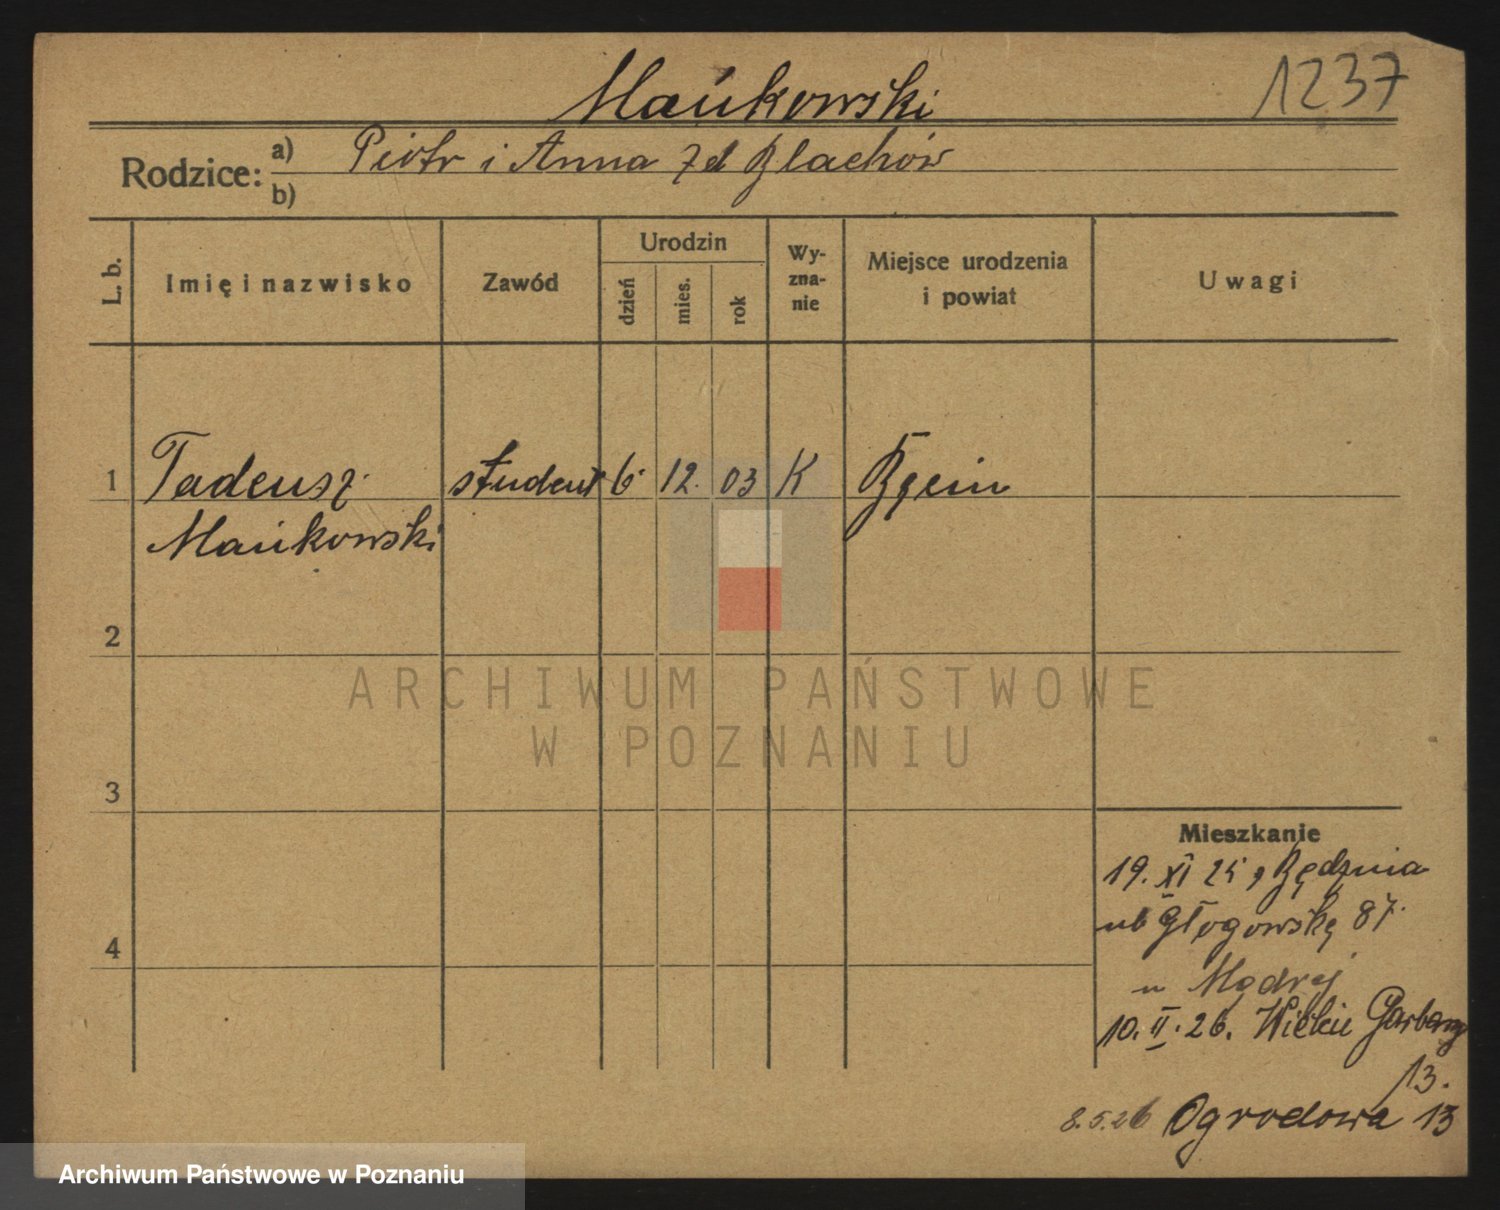 Mańkowski 1237
Rodzice: a) Piotr i Anna z d Blachów
b)
L. b. Imię i nazwisko Zawód Urodzin dzień mies. rok Wy-zna-nie Miejsce urodzenia i powiat Uwagi
1 Tadeusz student 6 12. 03 K
Mańkowski
2
ARCHIWUM PAŃSTWOWE
W POZNANIU
3
Mieszkanie
19. XI 25 z Będzina
ul Głogowska 87.
u Mądrej
4
10. II. 26. Wielkie Garbary
13.
8.5.26 Ogrodowa 13
Archiwum Państwowe w Poznaniu